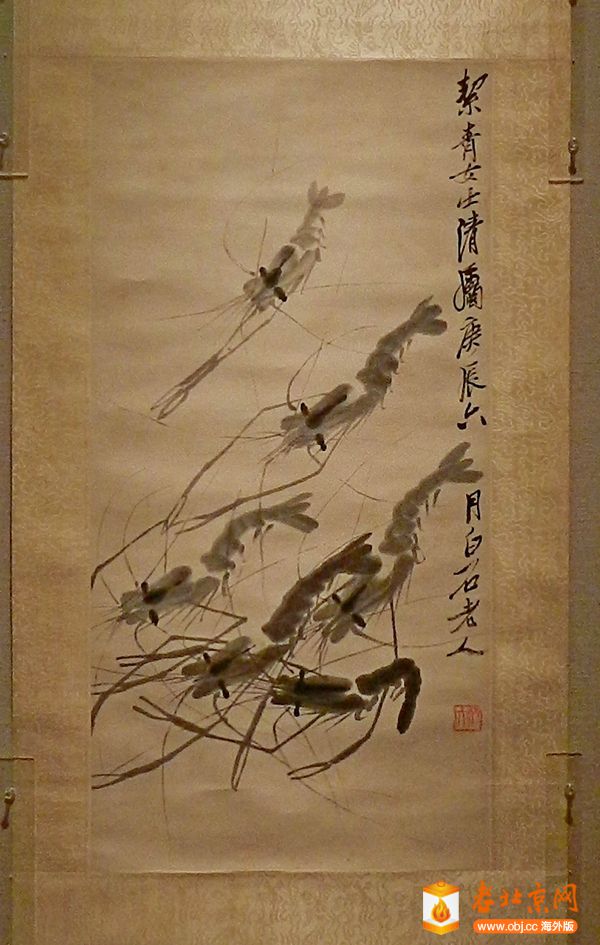 絜青女士清屬庚辰六
月白石老人
老北京网
www.obj.cc 海外版